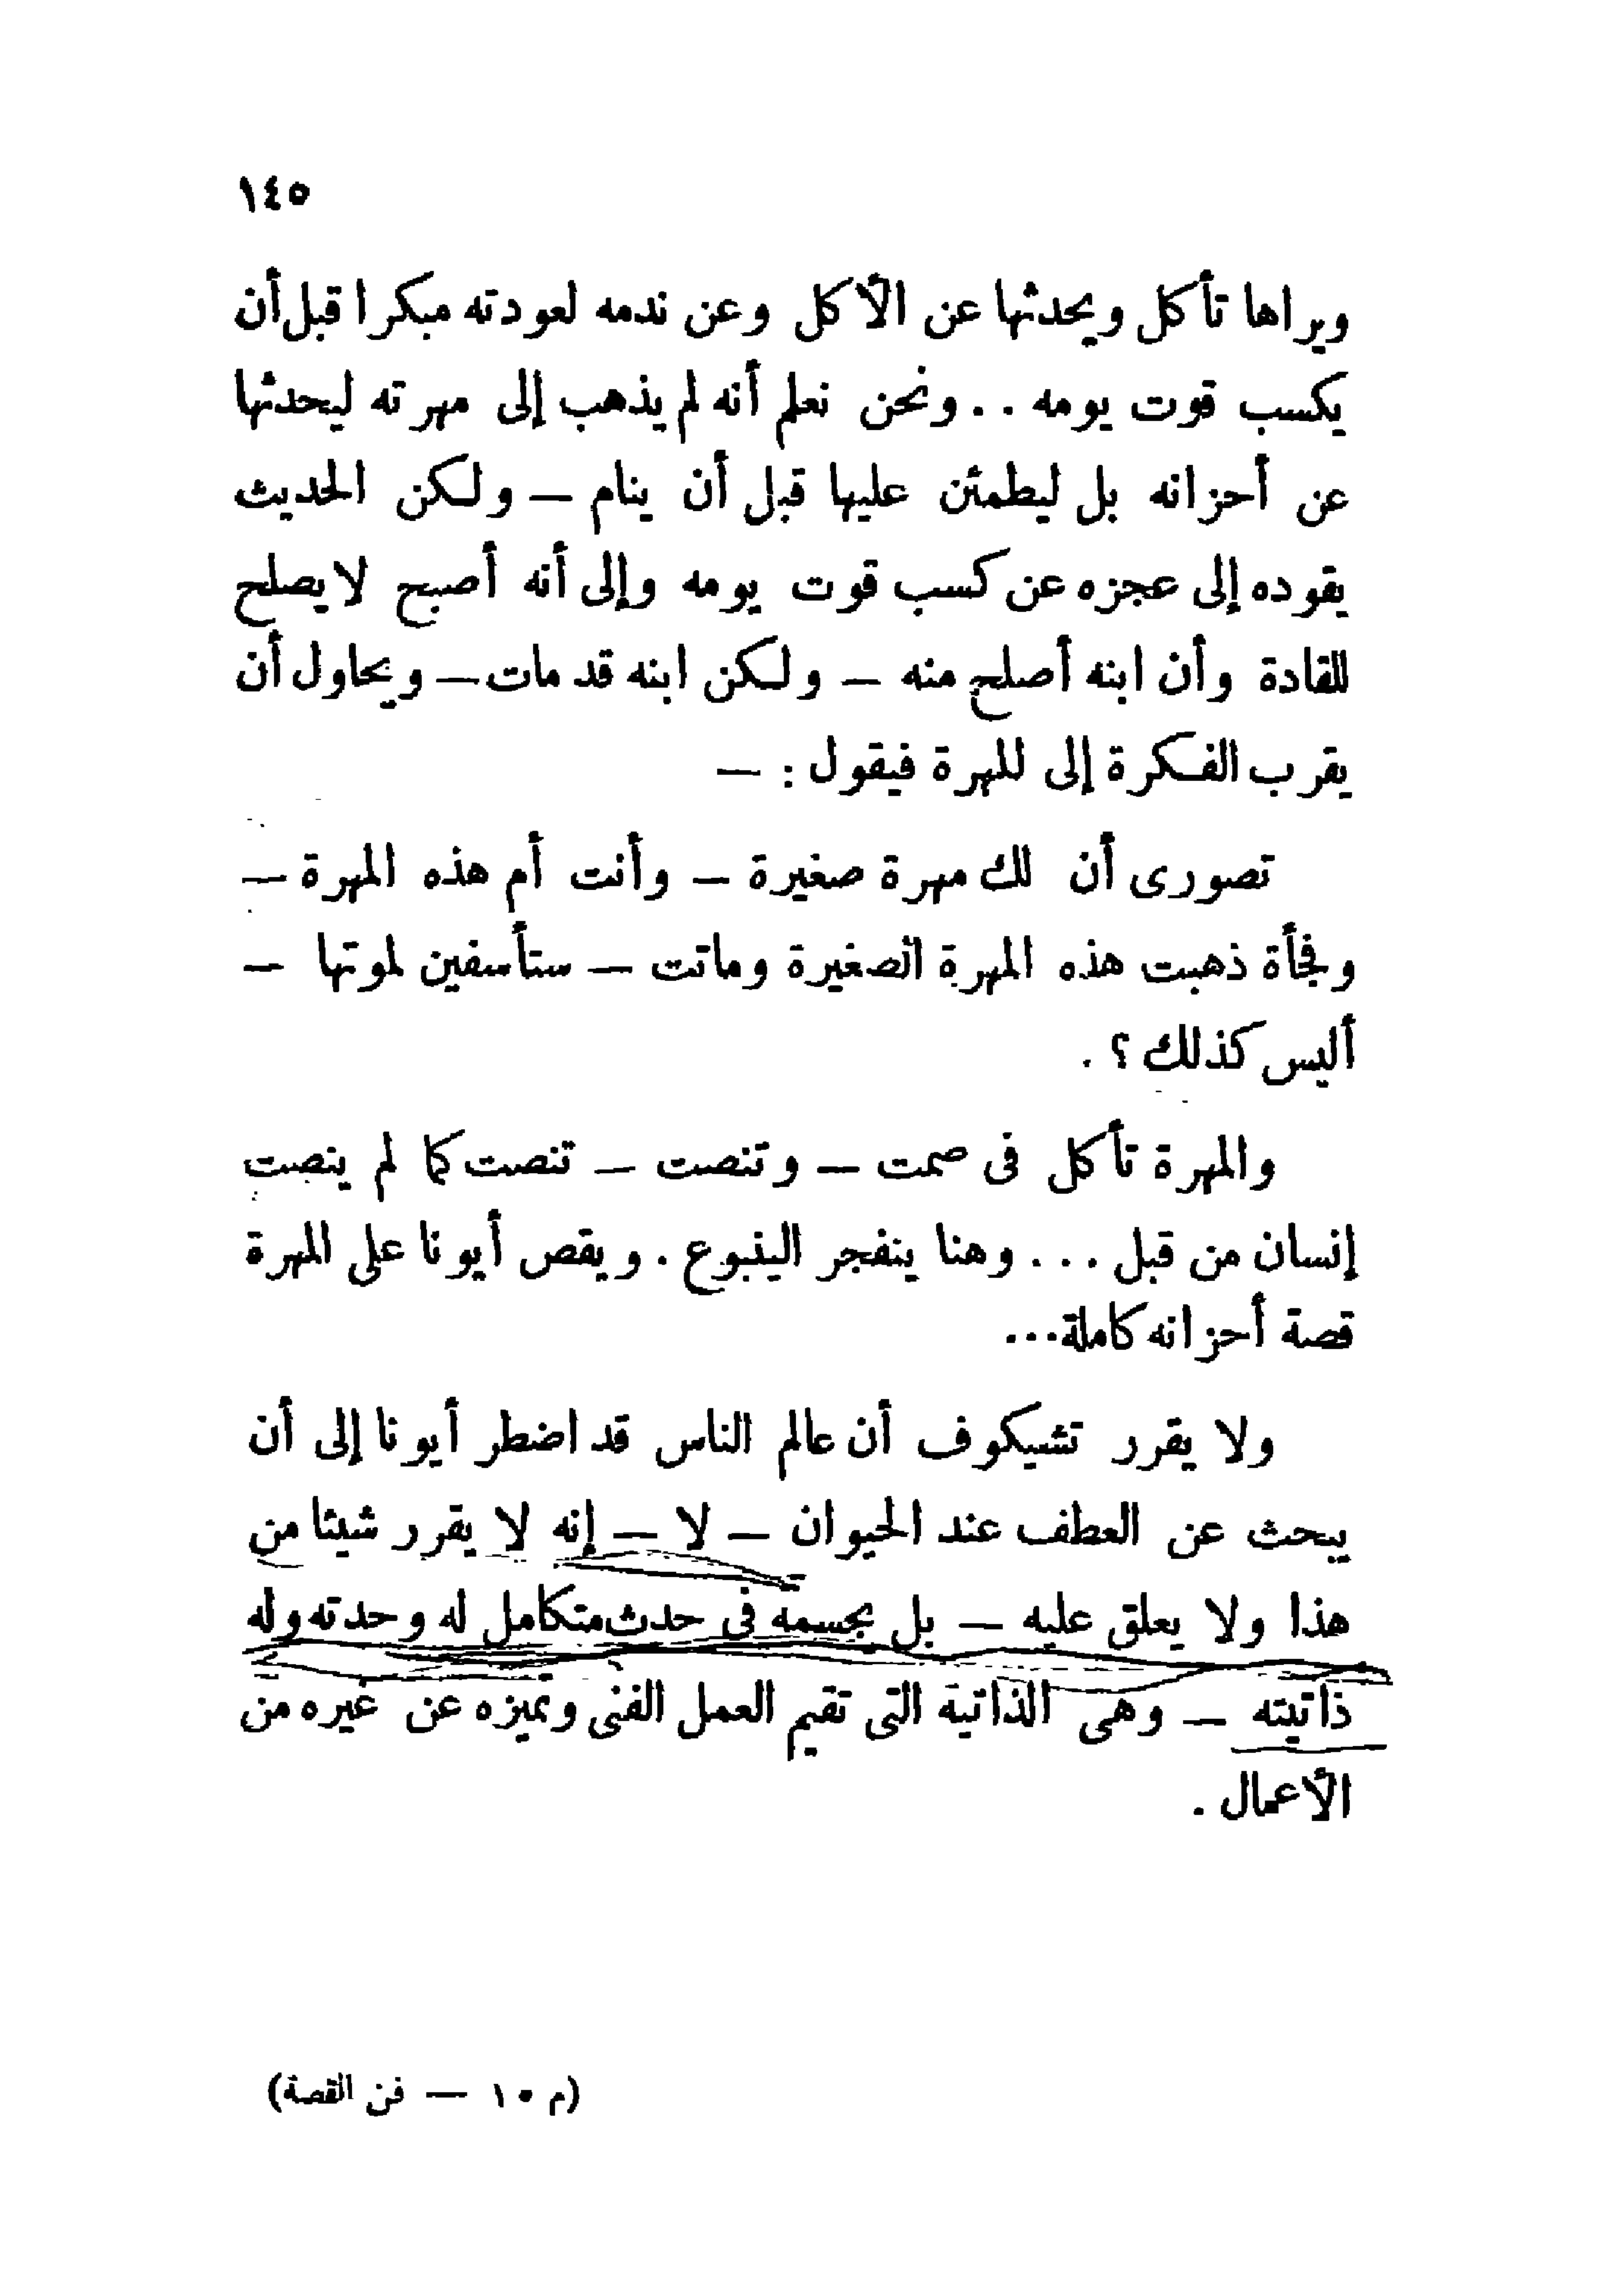 ١٤٥
ويراها تأكل ويحدثها عن الأكل وعن ندمه لعودته مبكرا قبل أن
يكسب قوت يومه . . ونحن نعلم أنه لم يذهب إلى مهرته ليحدثها
عن أحزانه بل ليطمئن عليها قبل أن ينام — ولكن الحديث
يقوده إلى عجزه عن كسب قوت يومه وإلى أنه أصبح لا يصلح
للقادة وأن ابنه أصلح منه — ولكن ابنه قد مات — ويحاول أن
يقرب الفكرة إلى للهرة فيقول : —
تصورى أن لك مهرة صغيرة — وأنت أم هذه المهرة —
وفجأة ذهبت هذه المهرة الصغيرة وماتت — ستأسفين لموتها —
أليس كذلك ؟ .
والمهرة تأكل فى صمت — وتنصت — تنصت كما لم ينصت
إنسان من قبل . . . وهنا ينفجر الينبوع . ويقص أيونا على المهرة
قصة أحزانه كاملة...
ولا يقرر تشيكوف أن عالم الناس قد اضطر أيونا إلى أن
يبحث عن العطف عند الحيوان — لا — إنه لا يقرر شيئا من
هذا ولا يعلق عليه — بل يجسمه فى حدث متكامل له وحدته وله
ذاتيته — وهى الذاتية التى تقيم العمل الفنى وتميزه عن غيره من
الأعمال .
(م ١٠ — فن القصة)